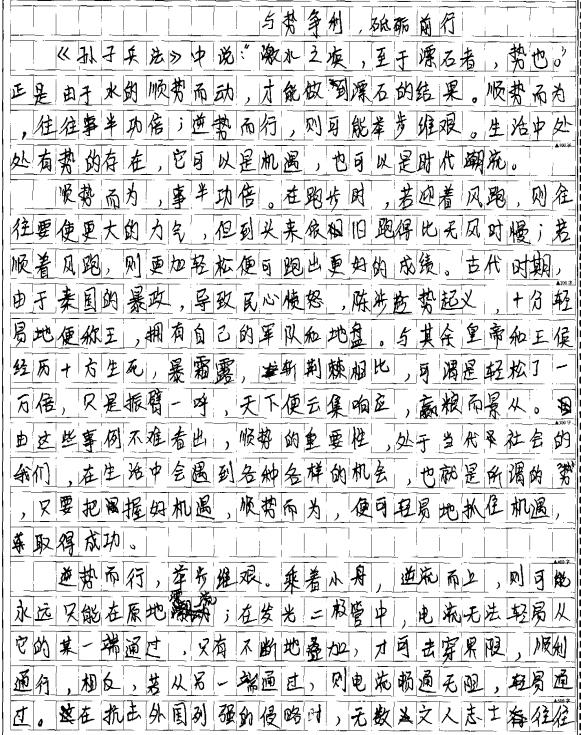 与势争利，砥砺前行
《孙子兵法》中说："激水之疾，至于漂石者，势也。"
正是由于水的顺势而动，才能做到漂石的结果。顺势而为
，往往事半功倍；逆势而行，则可能举步维艰。生活中处
处有势的存在，它可以是机遇，也可以是时代潮流。
顺势而为，事半功倍。在跑步时，若迎着风跑，则往
往要使更大的力气，但到头来依旧跑得比无风时慢；若
顺着风跑，则更加轻松便可跑出更好的成绩。古代时期，
由于秦国的暴政，导致民心愤怒，陈涉趁势起义，十分轻
易地便称王，拥有自己的军队和地盘。与其余皇帝和王侯
经历十方生死，暴霜露，斩荆棘相比，可谓是轻松了一
万倍，只是振臂一呼，天下便云集响应，赢粮而景从。
由这些事例不难看出，顺势的重要性，处于当代社会的
我们，在生活中会遇到各种各样的机会，也就是所谓的势
，只要把握好机遇，顺势而为，便可轻易地抓住机遇，
取得成功。
逆势而行，举步维艰。乘着小舟，逆流而上，则可能
永远只能在原地；在发光二极管中，电流无法轻易从
它的某一端通过，只有不断地叠加，才可击穿界限，顺利
通行，相反，若从另一端通过，则电流畅通无阻，轻易通
过。在抗击外国列强的侵略时，无数文人志士往往